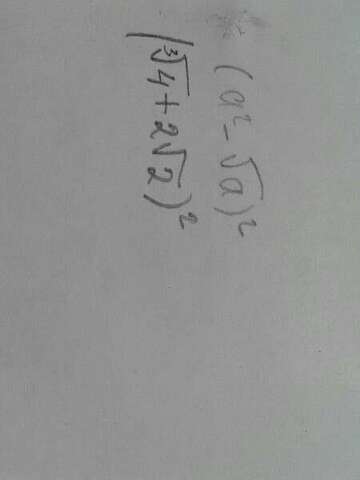 (a² - √a)²
(∛4 + 2√2)²